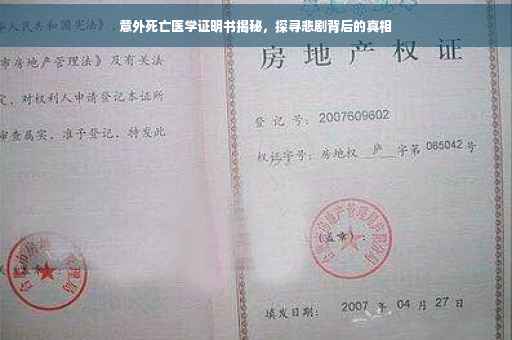 意外死亡医学证明书揭秘，探寻悲剧背后的真相
人民共和国宪法》、
市房地产管理法》及有关法
定，对权利人申请登记本证所
审查属实，准予登记，特发此
房地产权证
登记号：2007609602
权证字号：房地权 庐 字第 065042 号
(盖章)：
填发日期： 2007 年 04 月 27 日